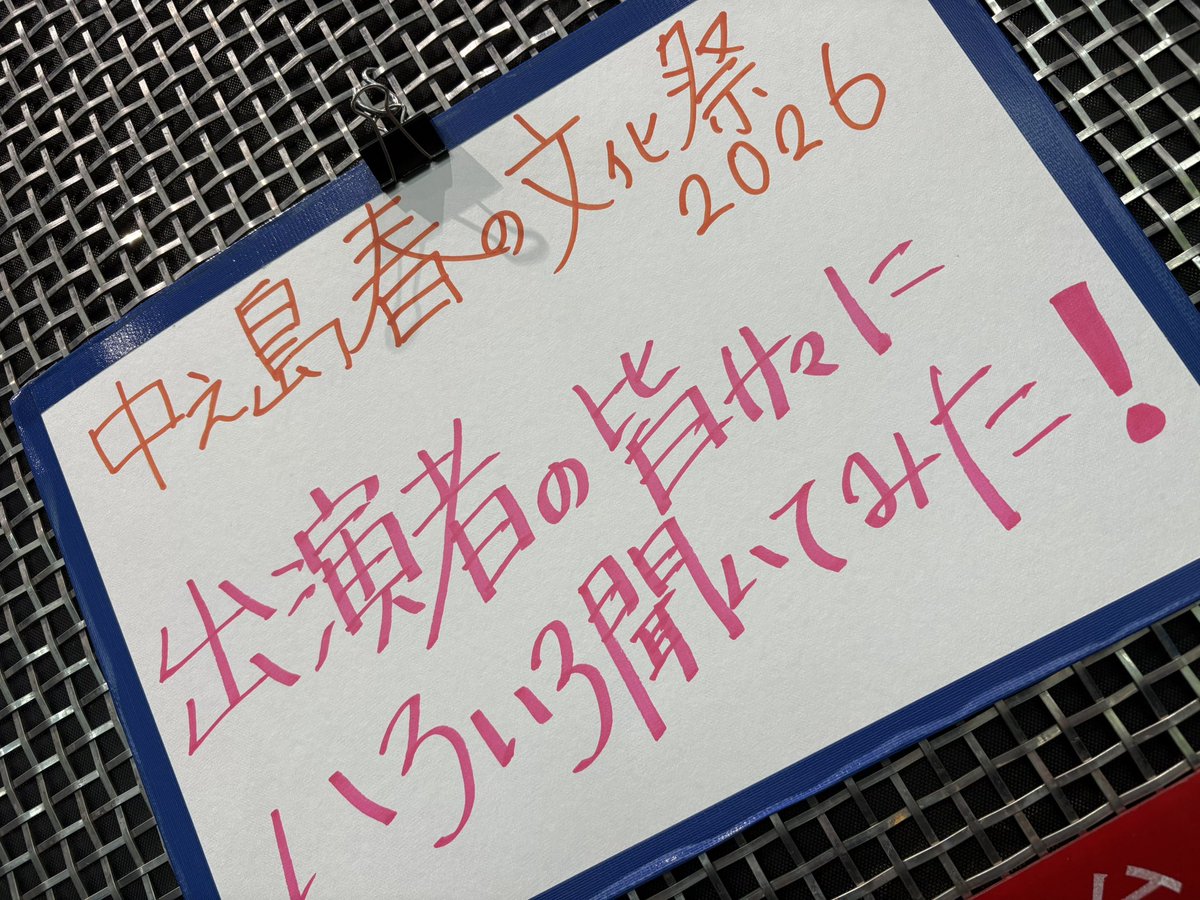 中之島春の文化祭
2026
出演者の皆さまに
いろいろ聞いてみた!